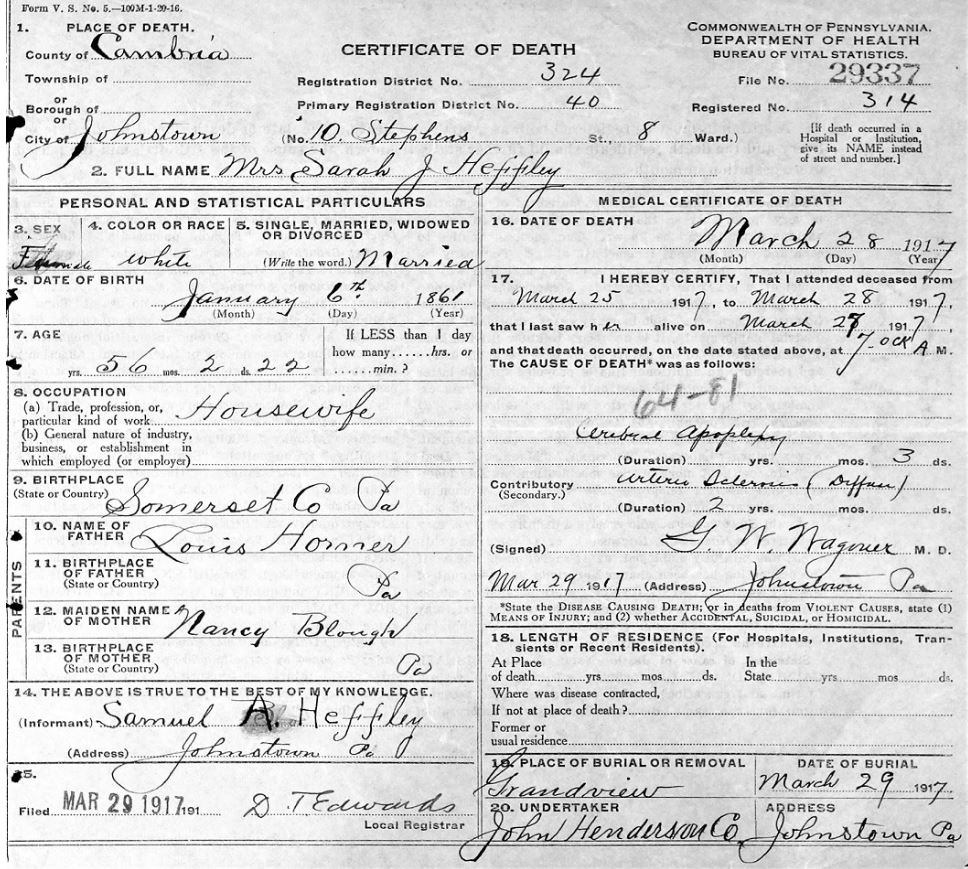 Form V. S. No. 5.—100M-1-20-16.
1. PLACE OF DEATH.
County of Cambria
Township of
or
Borough of
or
City of Johnstown
CERTIFICATE OF DEATH
Registration District No. 324
Primary Registration District No. 40
(No. 10. Stephens St., 8 Ward.)
COMMONWEALTH OF PENNSYLVANIA.
DEPARTMENT OF HEALTH
BUREAU OF VITAL STATISTICS.
File No. 29337
Registered No. 314
[If death occurred in a
Hospital or Institution,
give its NAME instead
of street and number.]
2. FULL NAME Mrs Sarah J Heffley
PERSONAL AND STATISTICAL PARTICULARS
3. SEX
Female
4. COLOR OR RACE
White
5. SINGLE, MARRIED, WIDOWED
OR DIVORCED
(Write the word.) Married
6. DATE OF BIRTH
January 6th 1861
(Month) (Day) (Year)
7. AGE
yrs. 56 mos. 2 ds. 22
If LESS than 1 day
how many......hrs. or
......min. ?
8. OCCUPATION
(a) Trade, profession, or,
particular kind of work Housewife
(b) General nature of industry,
business, or establishment in
which employed (or employer)
9. BIRTHPLACE
(State or Country) Somerset Co Pa
PARENTS
10. NAME OF
FATHER Louis Horner
11. BIRTHPLACE
OF FATHER
(State or Country) Pa
12. MAIDEN NAME
OF MOTHER Nancy Blough
13. BIRTHPLACE
OF MOTHER
(State or Country) Pa
14. THE ABOVE IS TRUE TO THE BEST OF MY KNOWLEDGE.
(Informant) Samuel A. Heffley
(Address) Johnstown Pa
15.
Filed MAR 29 1917 191 D. T. Edwards
Local Registrar
MEDICAL CERTIFICATE OF DEATH
16. DATE OF DEATH
March 28 1917
(Month) (Day) (Year)
17. I HEREBY CERTIFY, That I attended deceased from
March 25 1917, to March 28 1917.
that I last saw her alive on March 27 1917,
and that death occurred, on the date stated above, at 7-ock A M.
The CAUSE OF DEATH* was as follows:
64-81
Cerebral Apoplexy
(Duration) yrs. mos. 3 ds.
Contributory Arterio Sclerosis (Diffuse)
(Secondary.)
(Duration) 2 yrs. mos. ds.
(Signed) G. W. Wagoner M. D.
Mar 29 1917 (Address) Johnstown Pa
*State the DISEASE CAUSING DEATH; or in deaths from VIOLENT CAUSES, state (1)
MEANS OF INJURY; and (2) whether ACCIDENTAL, SUICIDAL, OR HOMICIDAL.
18. LENGTH OF RESIDENCE (For Hospitals, Institutions, Tran-
sients or Recent Residents).
At Place In the
of death......yrs......mos......ds. State......yrs......mos ds.
Where was disease contracted,
If not at place of death ?
Former or
usual residence
19. PLACE OF BURIAL OR REMOVAL
Grandview
DATE OF BURIAL
March 29 1917
20. UNDERTAKER
John Henderson Co.
ADDRESS
Johnstown Pa